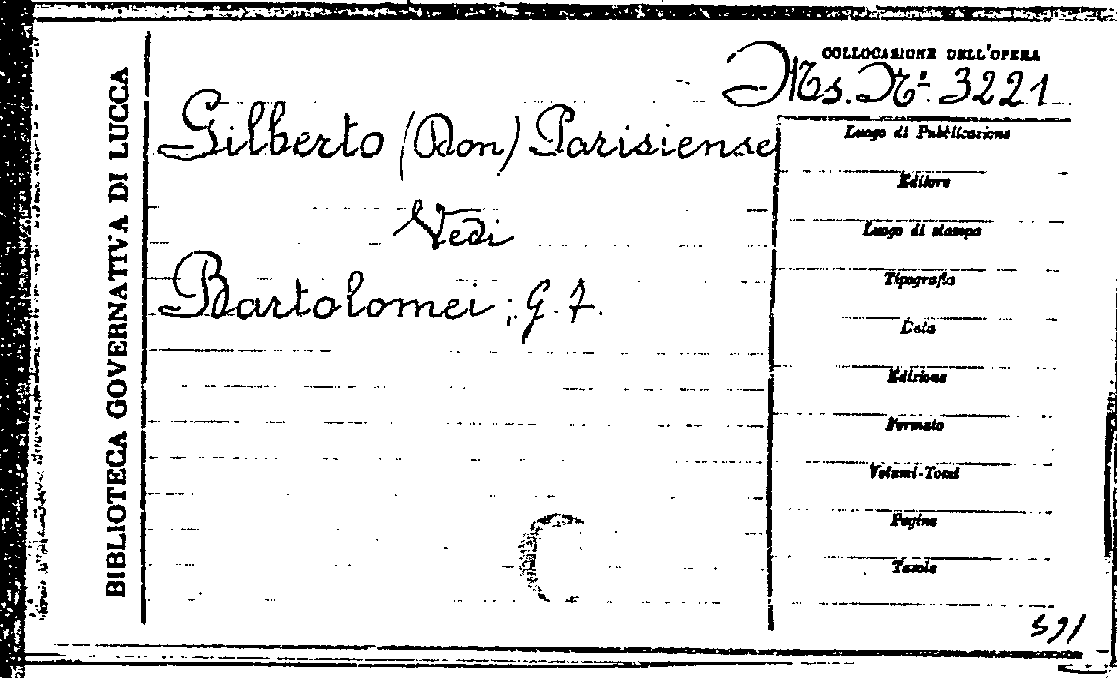 BIBLIOTECA GOVERNATIVA DI LUCCA
COLLOCAZIONE DELL'OPERA
Ms. N.º 3221
Gilberto (Don) Parisiense
Vedi
Bartolomei, G. F.
Luogo di Pubblicazione
Editore
Luogo di stampa
Tipografia
Data
Edizione
Formato
Volumi-Tomi
Pagine
Tavole
591